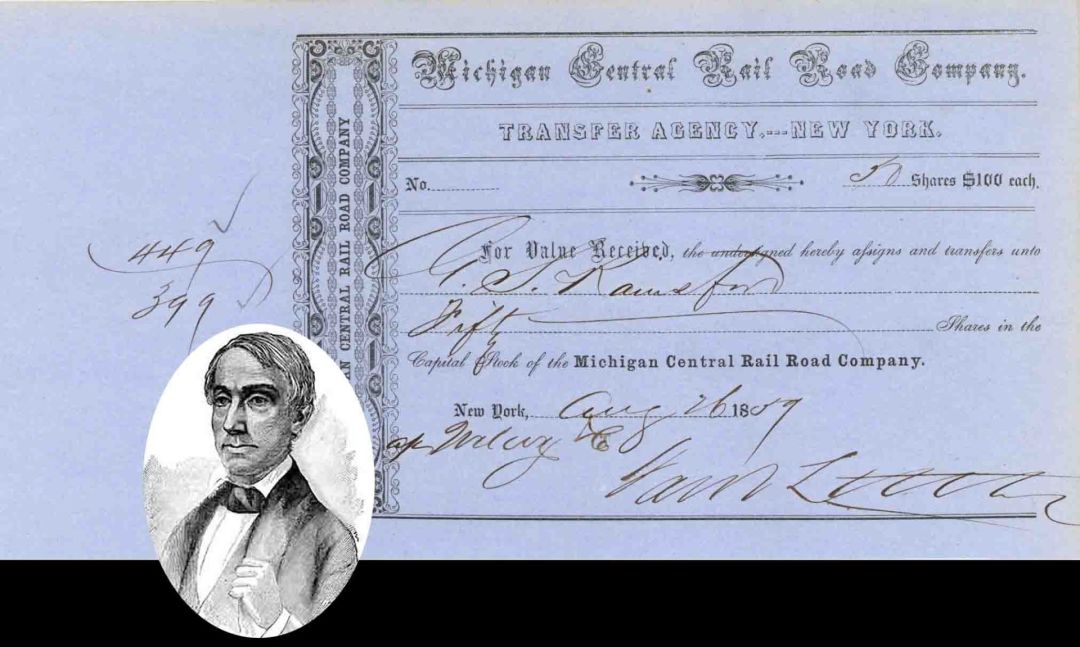 Michigan Central Rail Road Company.
TRANSFER AGENCY,---NEW YORK.
No.
50 Shares $100 each.
For Value Received, the undersigned hereby assigns and transfers unto
G. S.
Fifty Shares in the
Capital Stock of the Michigan Central Rail Road Company.
New York, Aug 26 1859
449
399
CENTRAL RAIL ROAD COMPANY